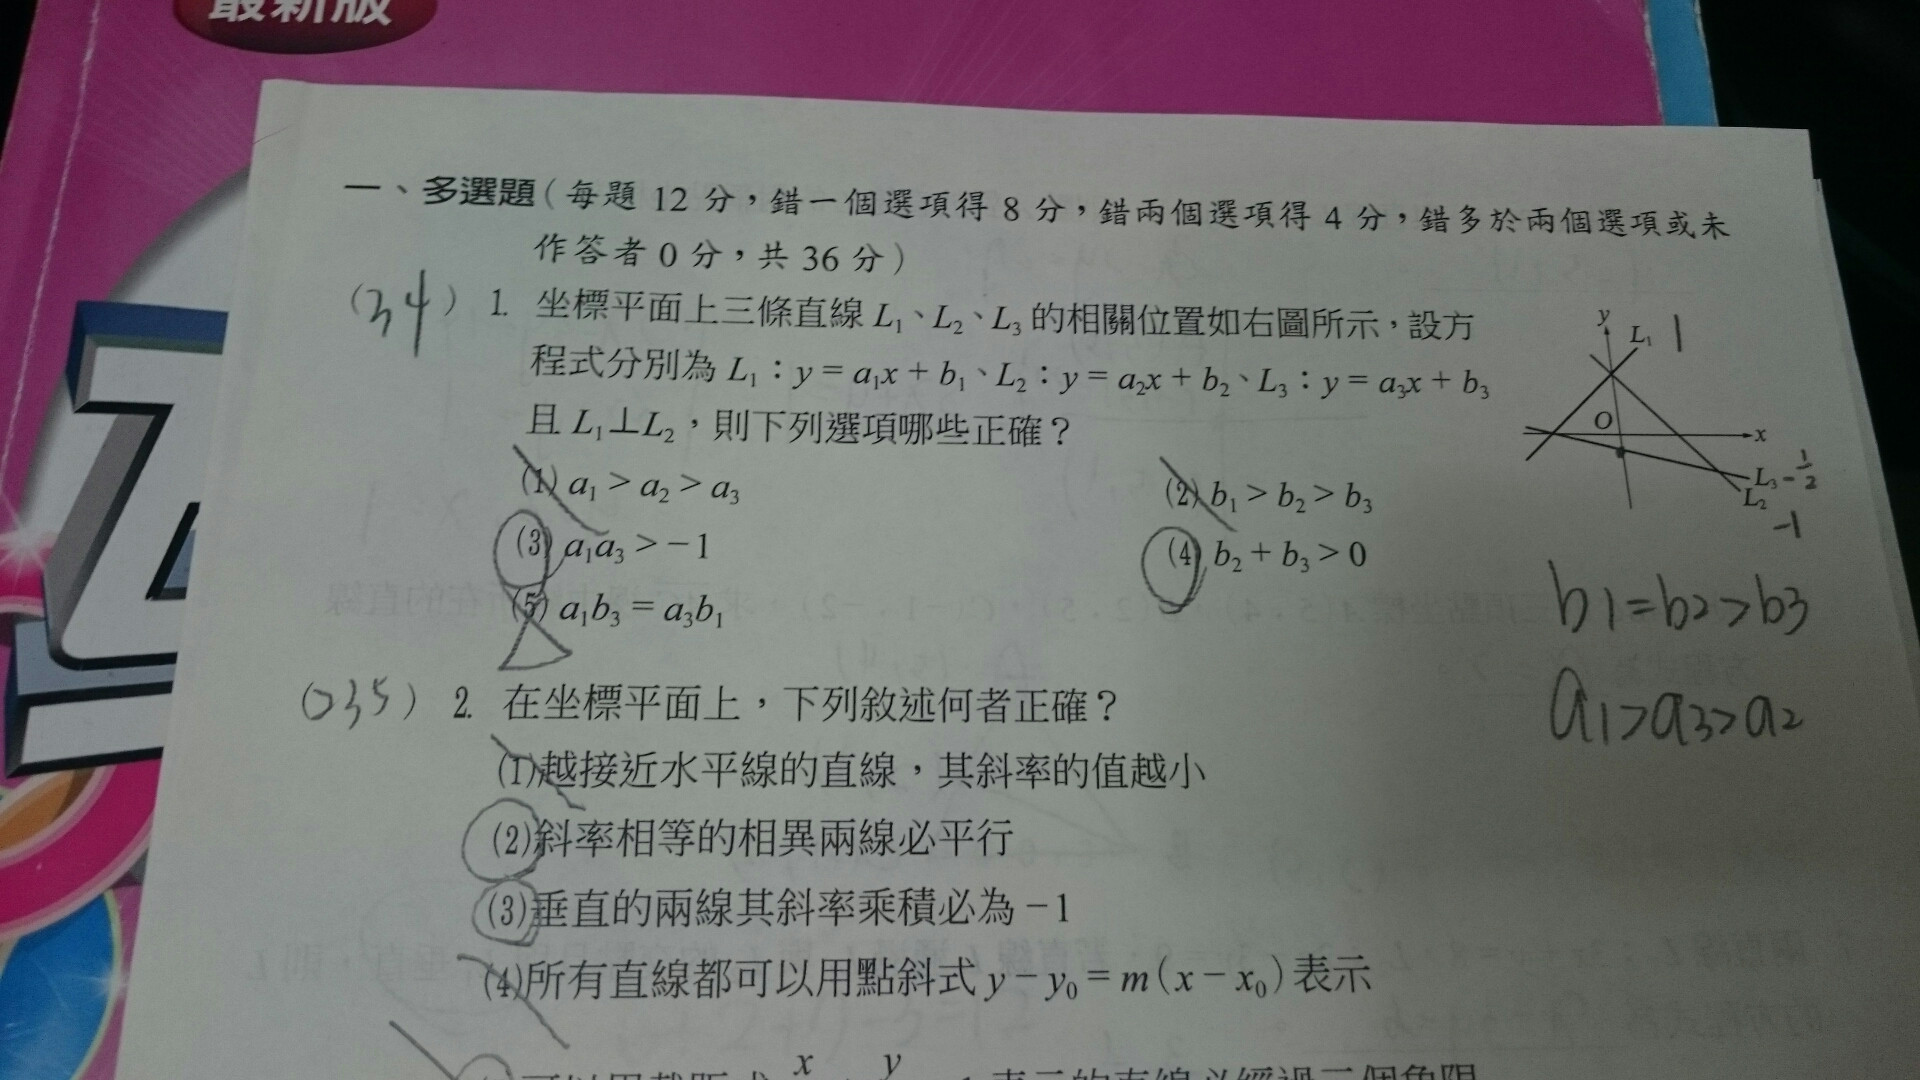 最新版
一、多選題(每題 12 分，錯一個選項得 8 分，錯兩個選項得 4 分，錯多於兩個選項或未
作答者 0 分，共 36 分)
(34) 1. 坐標平面上三條直線 L₁、L₂、L₃ 的相關位置如右圖所示，設方
程式分別為 L₁：y = a₁x + b₁、L₂：y = a₂x + b₂、L₃：y = a₃x + b₃
且 L₁⊥L₂，則下列選項哪些正確？
(1) a₁ > a₂ > a₃
(2) b₁ > b₂ > b₃
(3) a₁a₃ > −1
(4) b₂ + b₃ > 0
(5) a₁b₃ = a₃b₁
y
L₁ 1
O
x
L₃ -1/2
L₂
-1
b1=b2>b3
a1>a3>a2
(235) 2. 在坐標平面上，下列敘述何者正確？
(1)越接近水平線的直線，其斜率的值越小
(2)斜率相等的相異兩線必平行
(3)垂直的兩線其斜率乘積必為 −1
(4)所有直線都可以用點斜式 y − y₀ = m(x − x₀) 表示
x y